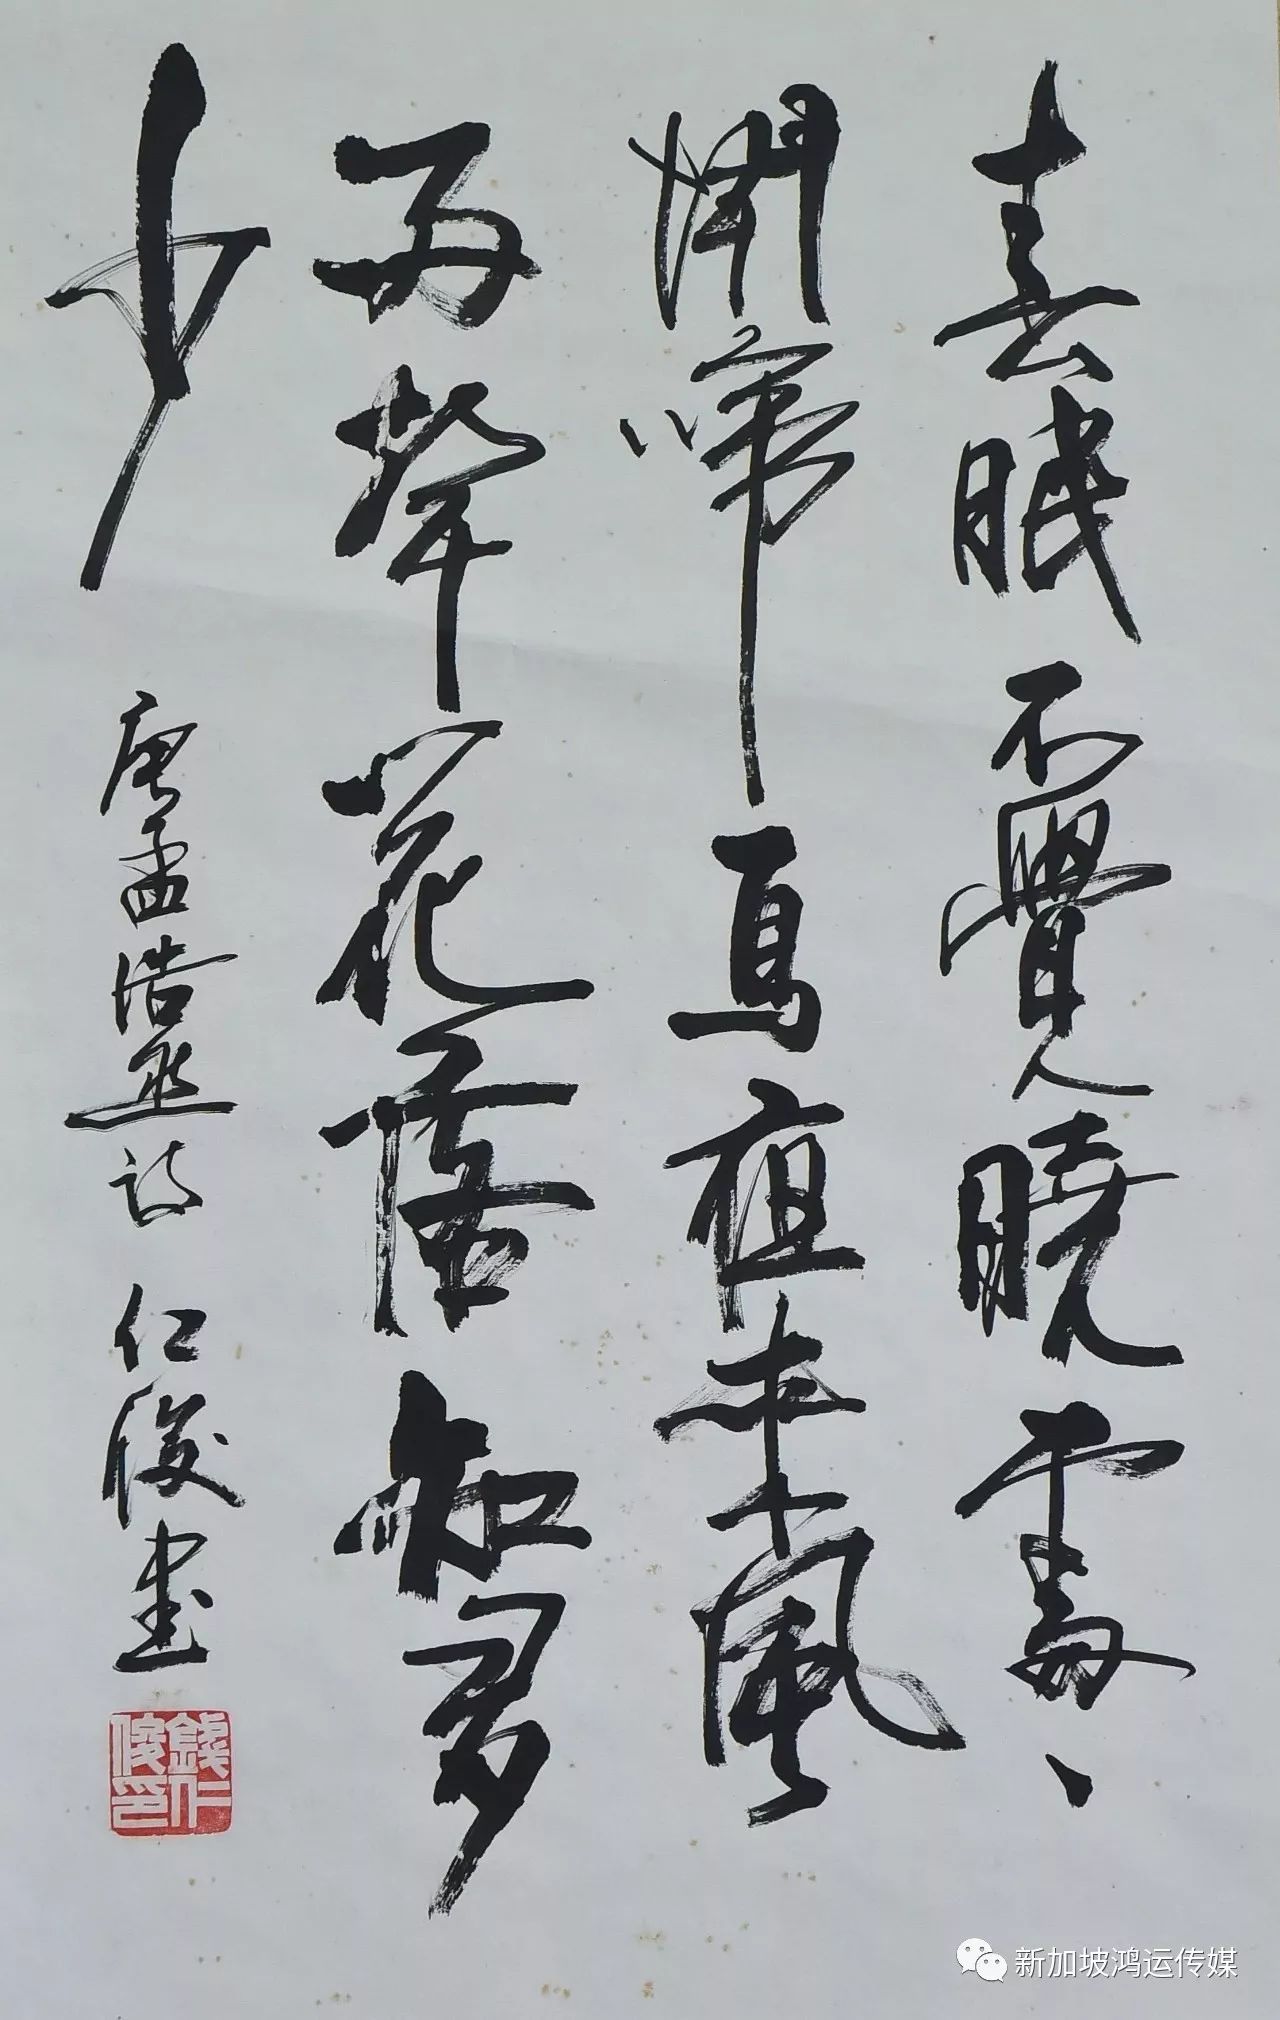 春眠不覺曉處〻
聞啼鳥夜來風
雨聲花落知多
少
唐孟浩然詩 仁俊書
錢仁俊印
新加坡鸿运传媒